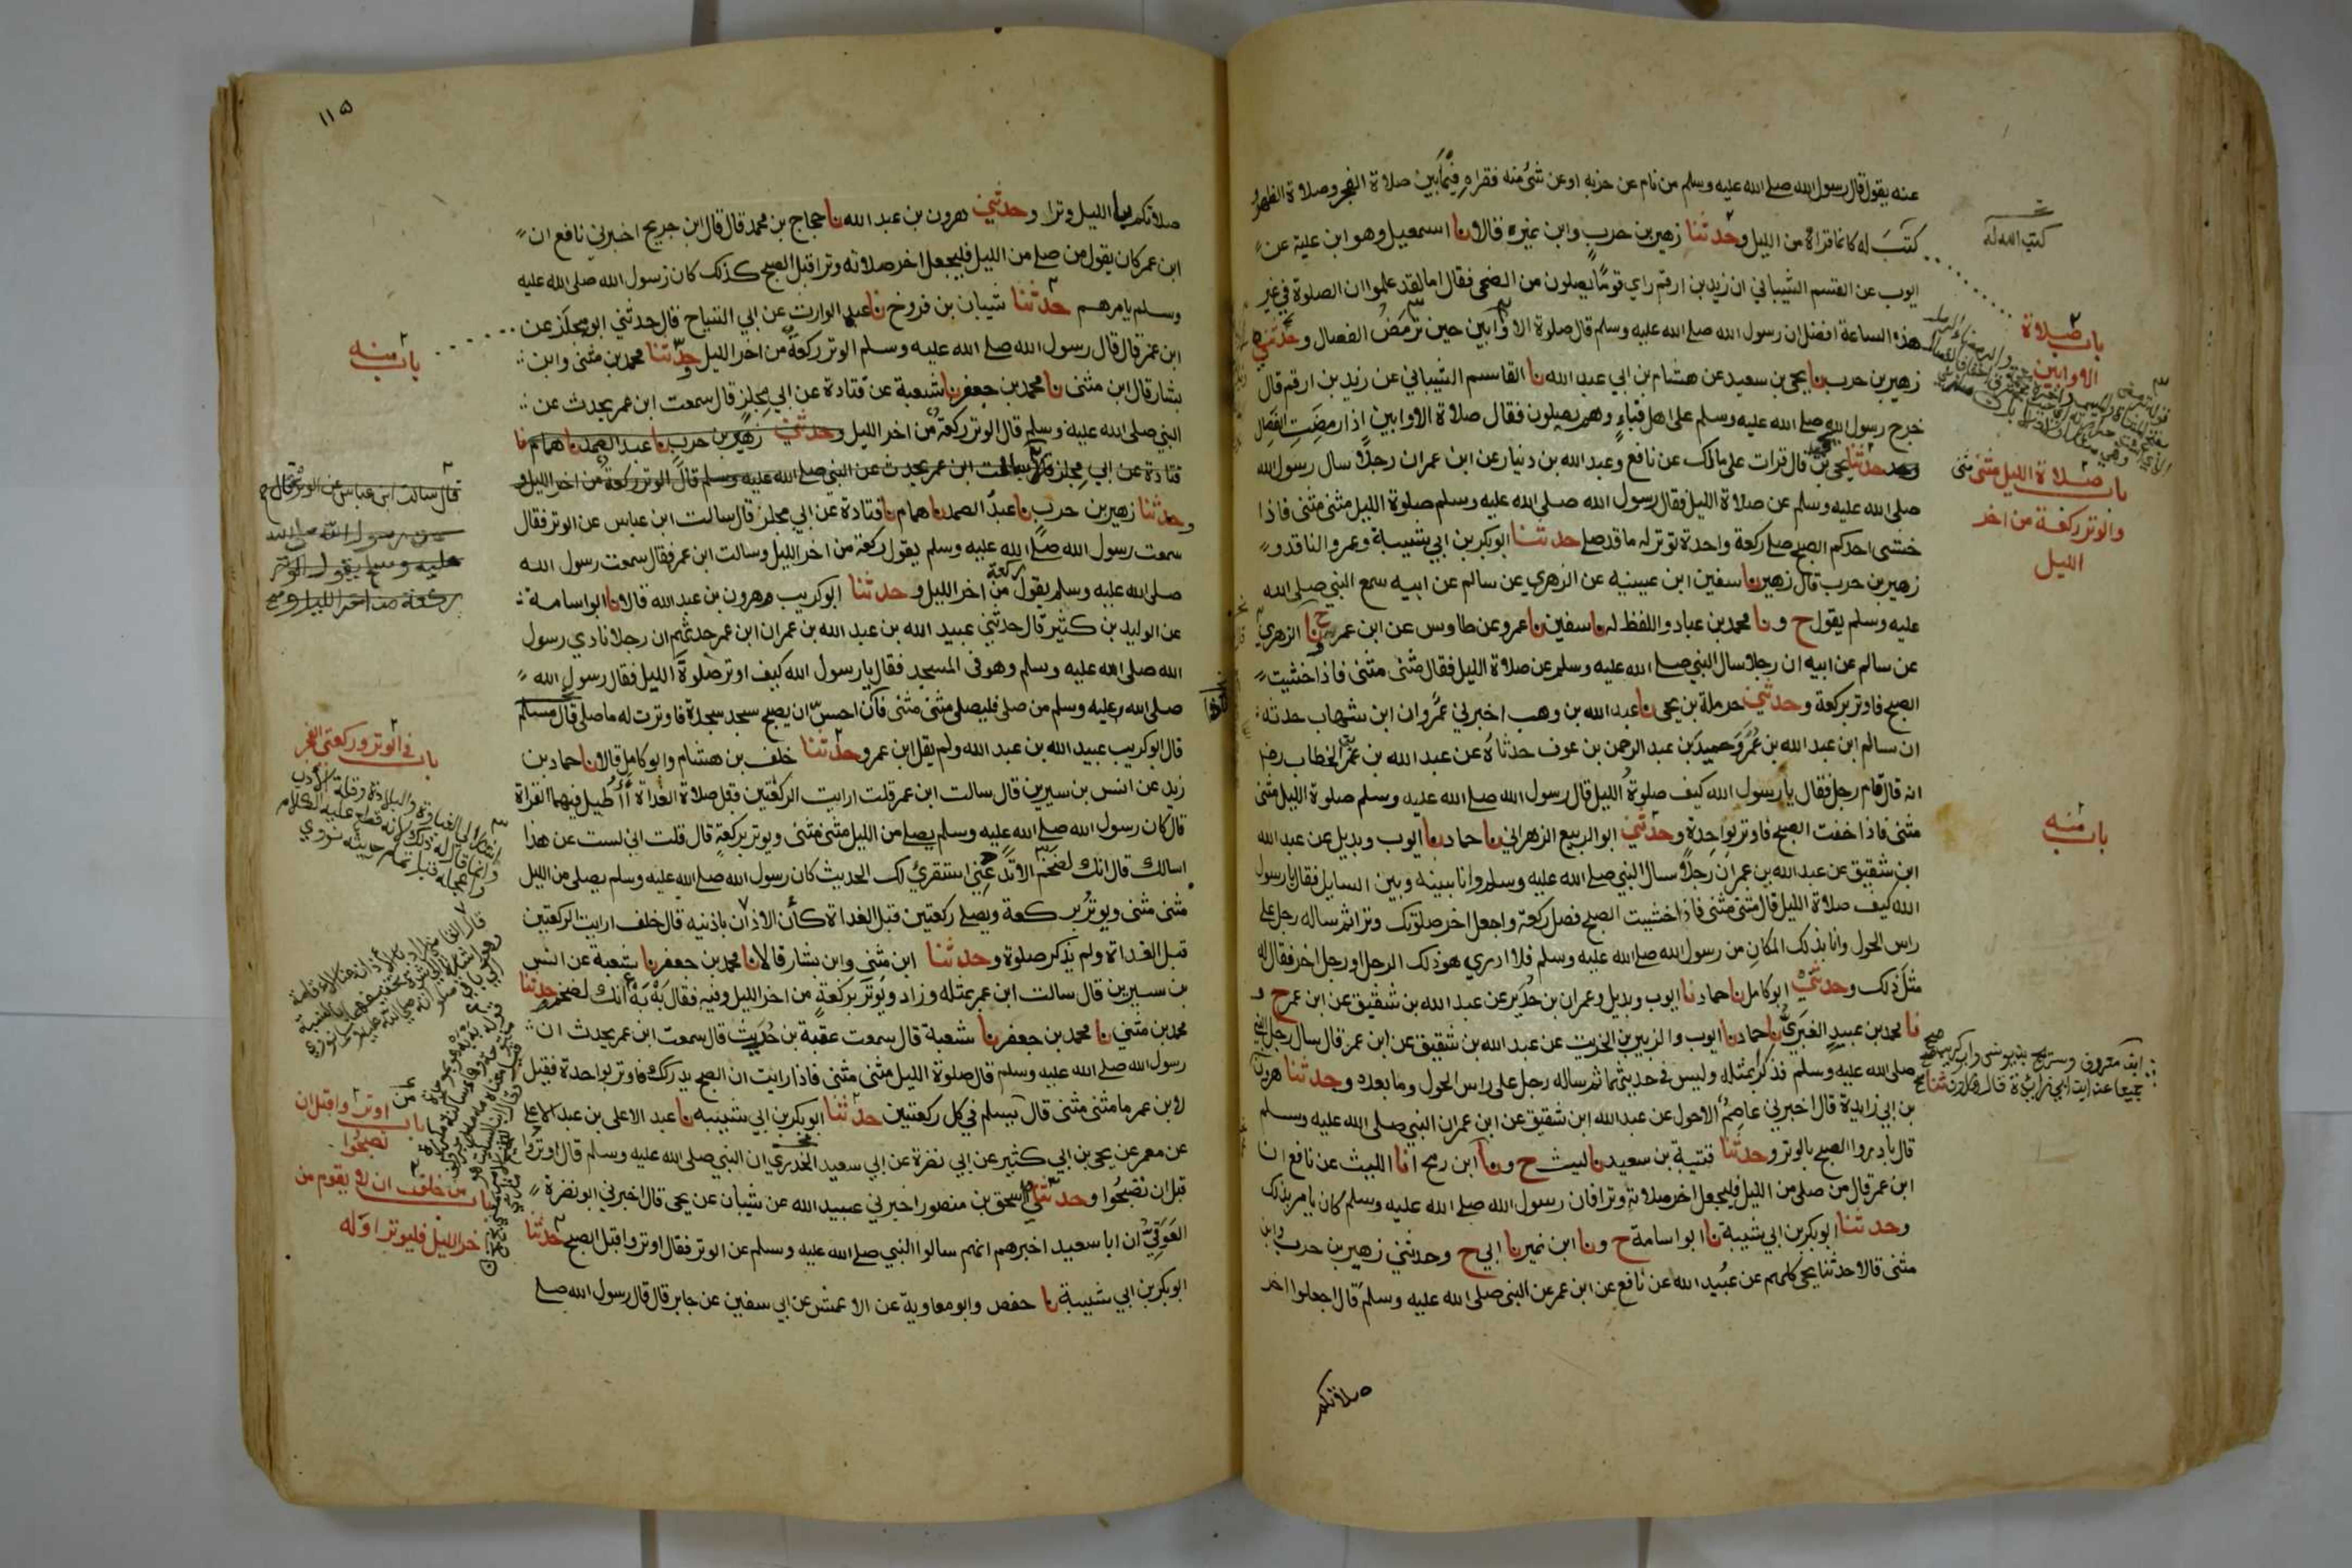 عنه يقول قال رسول الله صلے الله عليه وسلم من نام عن حزبه او عن شئ منه فقراه فيما بين صلاة الفجر وصلاة الظهر
كتب له كانما قراه من الليل وحدثنا زهير بن حرب وابن نمير قالا نا اسمعيل وهو ابن علية عن
كتب الله له
ايوب عن القسم الشيباني ان زيد بن ارقم راي قوما يصلون من الضحى فقال اما لقد علموا ان الصلوة في غير
هذه الساعة افضل ان رسول الله صلے الله عليه وسلم قال صلوة الاوابين حين ترمض الفصال وحدثني
باب صلاة
الاوابين
زهير بن حرب نا يحيى بن سعيد عن هشام بن ابي عبد الله نا القاسم الشيباني عن زيد بن ارقم قال
خرج رسول الله صلے الله عليه وسلم على اهل قباء وهم يصلون فقال صلاة الاوابين اذا رمضت الفصال
حدثنا يحيى بن قال قرات على مالك عن نافع وعبد الله بن دينار عن ابن عمر ان رجلا سال رسول الله
باب صلاة الليل مثنى مثنى
والوتر ركعة من اخر
الليل
صلى الله عليه وسلم عن صلاة الليل فقال رسول الله صلى الله عليه وسلم صلوة الليل مثنى مثنى فاذا
خشى احدكم الصبح صلے ركعة واحدة توتر له ما قد صلے حدثنا ابو بكر بن ابي شيبة وعمرو الناقد و
زهير بن حرب قال زهير نا سفين ابن عيينه عن الزهري عن سالم عن ابيه سمع النبي صلى الله
عليه وسلم يقول ح ونا محمد بن عباد واللفظ له نا سفين نا عمرو عن طاوس عن ابن عمر ح ونا الزهري
عن سالم عن ابيه ان رجلا سال النبي صلے الله عليه وسلم عن صلاة الليل فقال مثنى مثنى فاذا خشيت
الصبح فاوتر بركعة وحدثني حرملة بن يحيى نا عبد الله بن وهب اخبرني عمرو ان ابن شهاب حدثه
ان سالم ابن عبد الله بن عمر وحميد بن عبد الرحمن بن عوف حدثاه عن عبد الله بن عمر الخطاب
انه قال قام رجل فقال يا رسول الله كيف صلوة الليل قال رسول الله صلے الله عليه وسلم صلوة الليل مثنى
مثنى فاذا خفت الصبح فاوتر بواحدة وحدثني ابو الربيع الزهراني نا حماد نا ايوب وبديل عن عبد الله
باب منه
ابن شقيق عن عبد الله بن عمر ان رجلا سال النبي صلے الله عليه وسلم وانا بينه وبين السايل فقال يا رسول
الله كيف صلاة الليل قال مثنى مثنى فاذا خشيت الصبح فصل ركعة واجعل اخر صلوتك وترا ثم ساله رجل على
راس الحول وانا بذلك المكان من رسول الله صلے الله عليه وسلم فلا ادري هو ذلك الرجل او رجل اخر فقال له
مثل ذلك وحدثني ابو كامل نا حماد نا ايوب وبديل وعمران بن حدير عن عبد الله بن شقيق عن ابن عمر ح و
نا محمد بن عبيد الغبري نا حماد نا ايوب والزبير بن الخريت عن عبد الله بن شقيق عن ابن عمر قال سال رجل النبي
صلى الله عليه وسلم فذكر بمثله وليس في حديثهما ثم ساله رجل على راس الحول وما بعده وحدثنا هرون
بن ابي زايدة قال اخبرني عاصم الاحول عن عبد الله ابن شقيق عن ابن عمر ان النبي صلى الله عليه وسلم
قال بادروا الصبح بالوتر وحدثنا قتيبة بن سعيد نا ليث ح ونا ابن رمح انا الليث عن نافع ان
ابن عمر قال من صلى من الليل فليجعل اخر صلاته وترا فان رسول الله صلے الله عليه وسلم كان يامر بذلك
وحدثنا ابو بكر بن ابي شيبة نا ابو اسامة ح ونا ابن نمير نا ابي ح وحدثني زهير بن حرب وابن
مثنى قالا حدثنا يحيى كلهم عن عبيد الله عن نافع عن ابن عمر عن النبي صلى الله عليه وسلم قال اجعلوا اخر
صلاتكم
١١٥
صلاتكم بالليل وترا وحدثني هرون بن عبد الله نا حجاج بن محمد قال قال ابن جريج اخبرني نافع ان
ابن عمر كان يقول من صلے من الليل فليجعل اخر صلاته وترا قبل الصبح كذلك كان رسول الله صلى الله عليه
وسلم يامرهم حدثنا شيبان بن فروخ نا عبد الوارث عن ابي التياح قال حدثني ابو مجلز عن
باب منه
ابن عمر قال قال رسول الله صلے الله عليه وسلم الوتر ركعة من اخر الليل وحدثنا محمد بن مثنى وابن
بشار قال ابن مثنى نا محمد بن جعفر نا شعبة عن قتادة عن ابي مجلز قال سمعت ابن عمر يحدث عن
النبي صلى الله عليه وسلم قال الوتر ركعة من اخر الليل وحدثني زهير بن حرب نا عبد الصمد نا همام نا
قتادة عن ابي مجلز قال سالت ابن عمر يحدث عن النبي صلے الله عليه وسلم قال الوتر ركعة من اخر الليل و
قال سالت ابن عباس عن الوتر فقال
وحدثنا زهير بن حرب نا عبد الصمد نا همام نا قتادة عن ابي مجلز قال سالت ابن عباس عن الوتر فقال
سمعت رسول الله صلے الله عليه وسلم يقول ركعة من اخر الليل وسالت ابن عمر فقال سمعت رسول الله
صلى الله عليه وسلم يقول ركعة من اخر الليل وحدثنا ابو كريب وهرون بن عبد الله قالا نا ابو اسامة
عن الوليد بن كثير قال حدثني عبيد الله بن عبد الله بن عمر ان ابن عمر حدثهم ان رجلا نادي رسول
الله صلى الله عليه وسلم وهو في المسجد فقال يا رسول الله كيف اوتر صلوة الليل فقال رسول الله
صلى الله عليه وسلم من صلى فليصلى مثنى مثنى فان احس ان يصبح سجد سجدة فاوترت له ما صلى قال مسلم
قال ابو كريب عبيد الله بن عبد الله ولم يقل ابن عمر وحدثنا خلف بن هشام وابو كامل قالا نا حماد بن
باب في الوتر وركعتى الفجر
زيد عن انس بن سيرين قال سالت ابن عمر قلت ارايت الركعتين قبل صلاة الغداة أأطيل فيهما القراة
قال كان رسول الله صلے الله عليه وسلم يصلے من الليل مثنى مثنى ويوتر بركعة قال قلت اني لست عن هذا
اسالك قال انك لضخم الا تدعني استقرئ لك الحديث كان رسول الله صلے الله عليه وسلم يصلى من الليل
مثنى مثنى ويوتر بركعة ويصلے ركعتين قبل الغداة كأن الاذان باذنيه قال خلف ارايت الركعتين
قبل الغداة ولم يذكر صلوة وحدثنا ابن مثنى وابن بشار قالا نا محمد بن جعفر نا شعبة عن انس
بن سيرين قال سالت ابن عمر بمثله وزاد ويوتر بركعة من اخر الليل وفيه فقال به به انك لضخم حدثنا
محمد بن مثني نا محمد بن جعفر نا شعبة قال سمعت عقبة بن حريث قال سمعت ابن عمر يحدث ان
رسول الله صلے الله عليه وسلم قال صلوة الليل مثنى مثنى فاذا رايت ان الصبح يدركك فاوتر بواحدة فقيل
لابن عمر ما مثنى مثنى قال يسلم في كل ركعتين حدثنا ابو بكر بن ابي شيبه نا عبد الاعلى بن عبد الاعلے
باب اوتروا قبل ان
تصبحوا
عن معمر عن يحيى بن ابي كثير عن ابي نضرة عن ابي سعيد الخدري ان النبي صلى الله عليه وسلم قال اوتروا
قبل ان تصبحوا وحدثني اسحق بن منصور اخبرني عبيد الله عن شيبان عن يحيى قال اخبرني ابو نضرة
العوقي ان ابا سعيد اخبرهم انهم سالوا النبي صلے الله عليه وسلم عن الوتر فقال اوتروا قبل الصبح حدثنا
باب من خاف ان لا يقوم من
اخر الليل فليوتر اوله
ابو بكر بن ابي شيبة نا حفص وابو معاوية عن الاعمش عن ابي سفين عن جابر قال قال رسول الله صلے